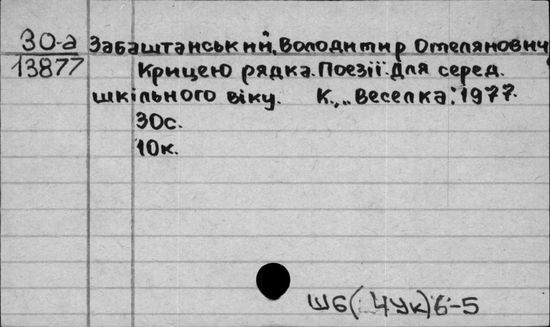 30-а Забаштанський, Володимир Омелянович
13877 Крицею рядка. Поезії. Для серед.
шкільного віку. К., „Веселка“. 1977.
30с.
10к.
Шб(4Ук)6-5